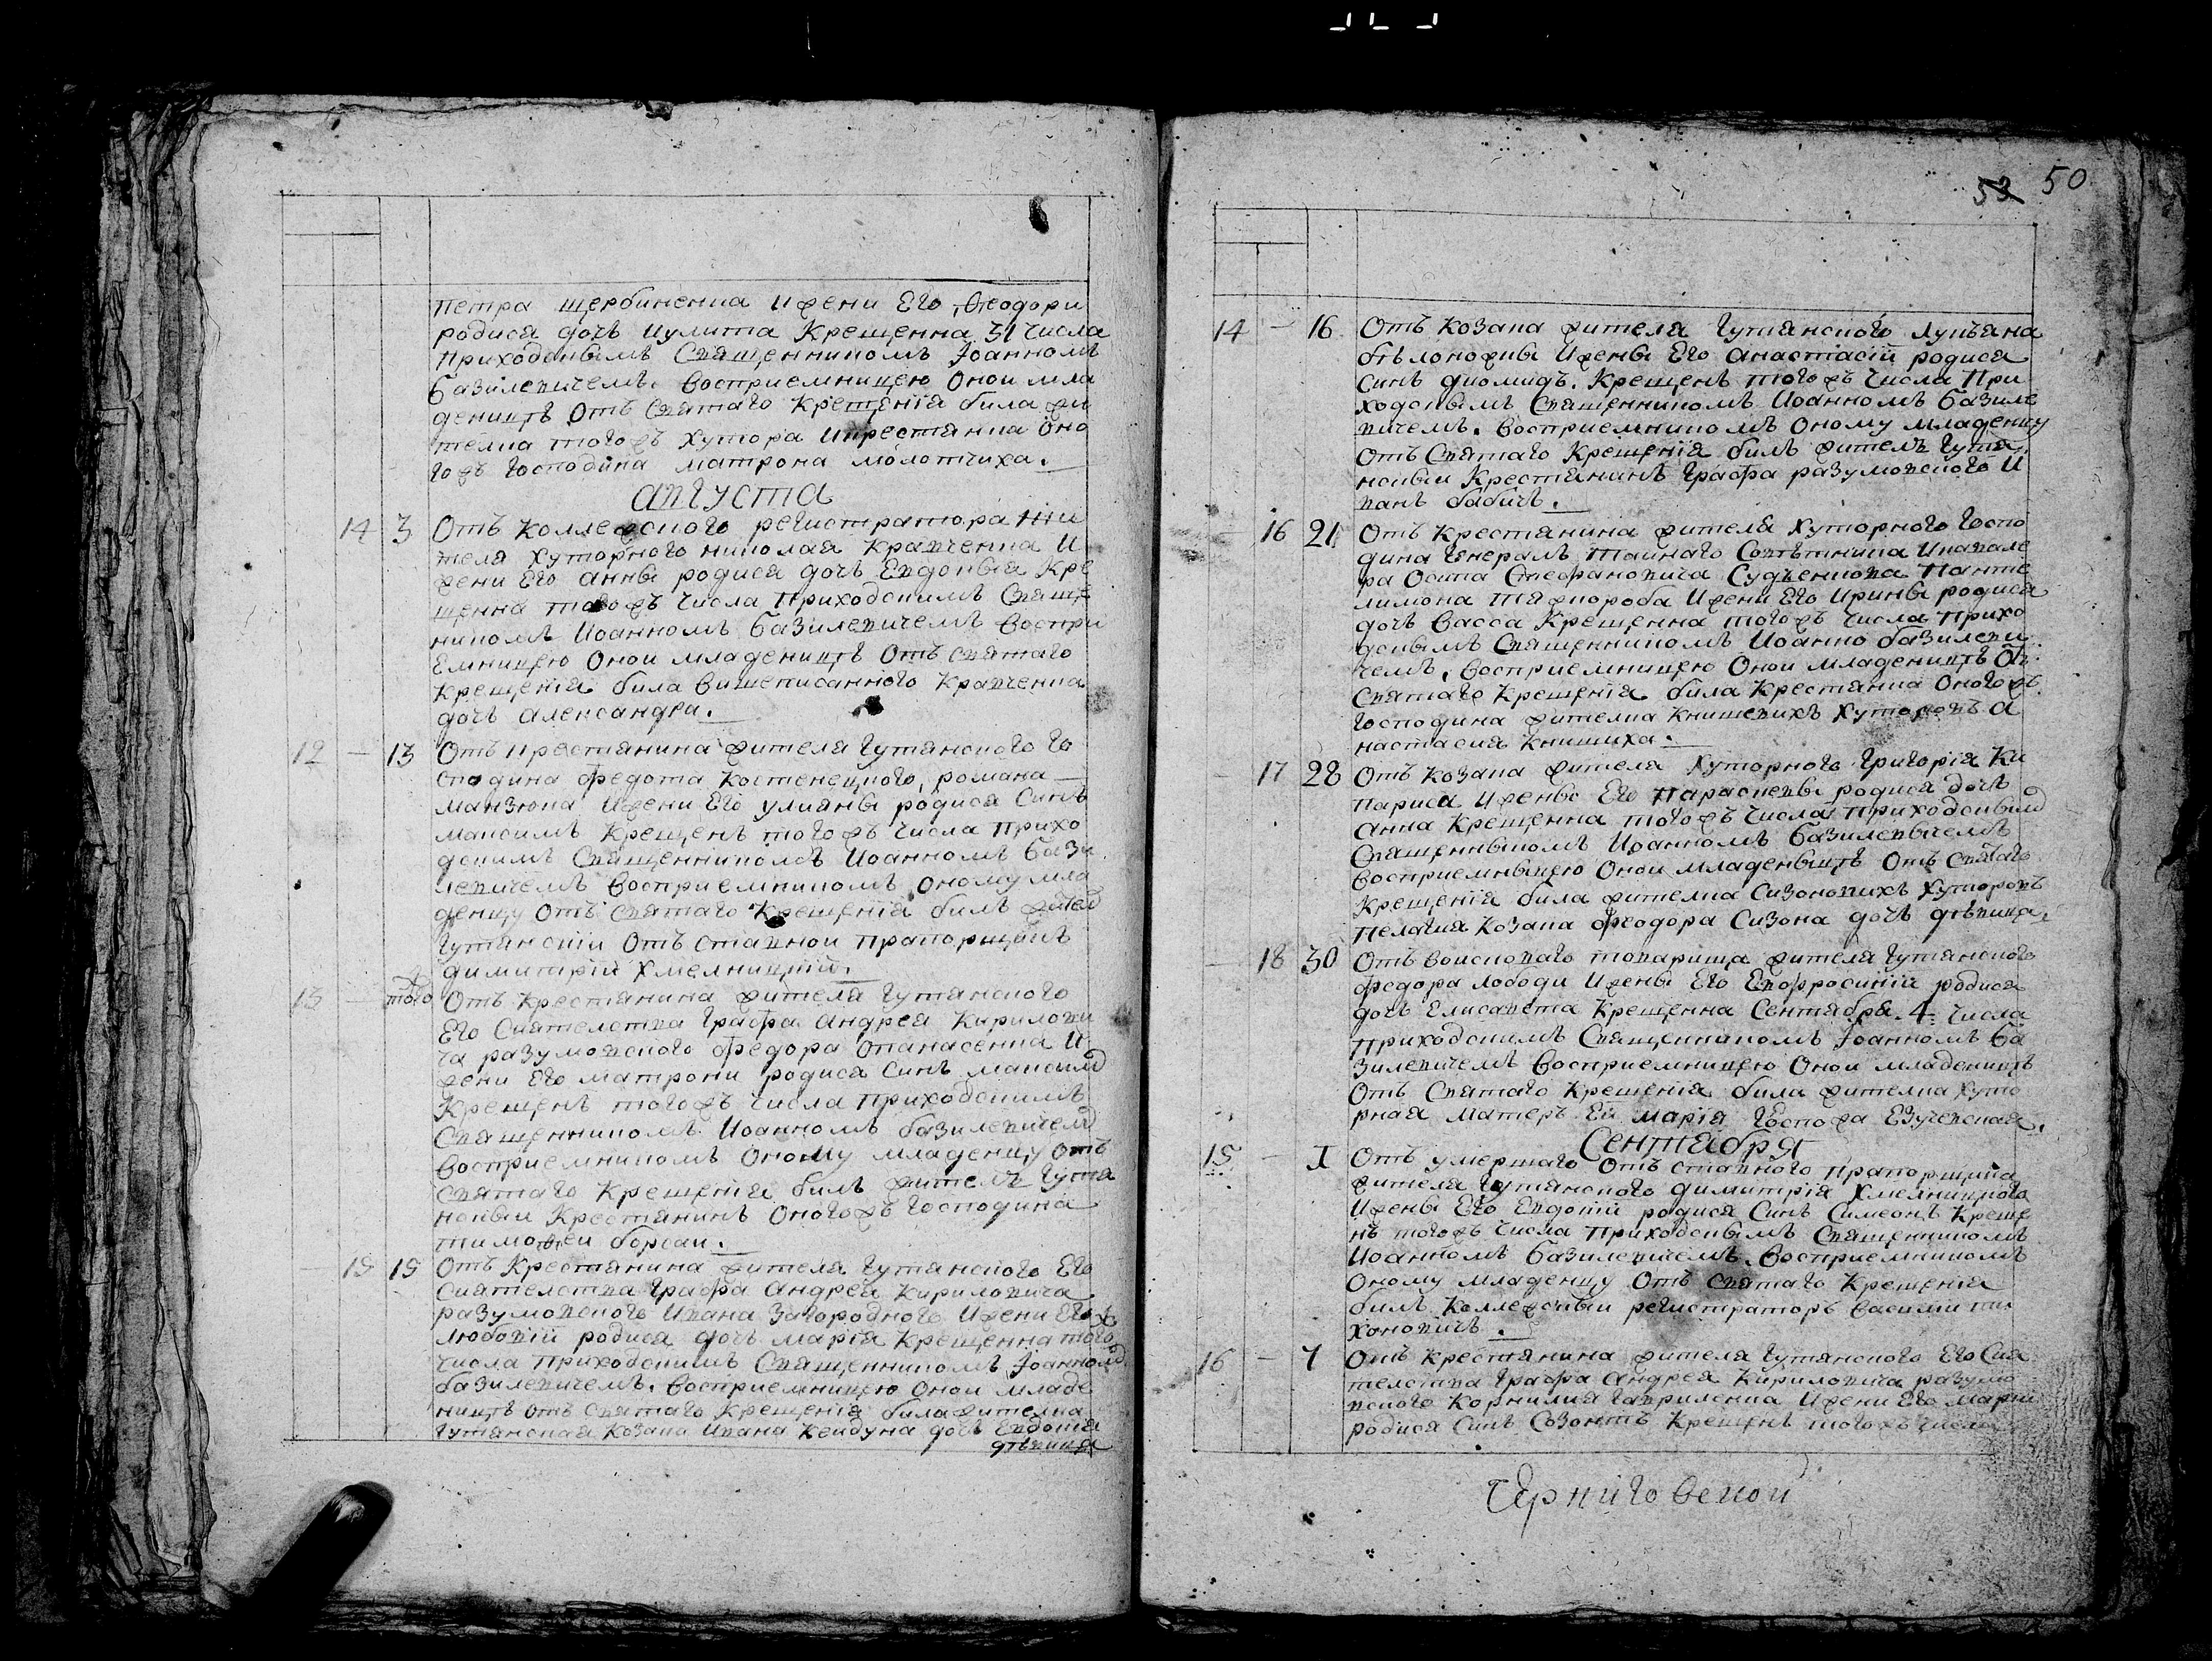 петра щербиненка ижени Его Ѳеодори
родися дочъ иулита Крещенна 31 числа
приходскымъ Священникомъ Іоанномъ
базилевичемъ. восприемницею Онои мла
деницѣ Отъ Святаго Крещенія била жи
телка тогожъ Хутора икрестянка Оно
гожъ Господина матрона молотчиха.
августа
14 3 Отъ Коллежского регистратора жи
теля Хуторного николая Кравченка И
жени Его анны родися дочъ Евдокыя Кре
щенна тогожъ числа приходскимъ Свяще
никомъ Иоанномъ базилевичемъ воспри
Емницею Онои младеницѣ Отъ святаго
Крещенія била вишеписанного Кравченка
дочъ александра.
12 — 13 Отъ крестянина жителя Гутянского Го
сподина федота Костенецкого, романа
манзюка Ижени Его улияны родися Синъ
маѯимъ Крещенъ тогожъ числа прихо
дскимъ Священникомъ Иоанномъ бази
левичемъ восприемникомъ Оному мла
денцу Отъ святаго Крещенія билъ жител
Гутянскіи Отъ ставнои прапорщикъ
димитрій Хмелницкій.
13 — того Отъ Крестянина жителя Гутянского
Его Сиятелства Графа Андрея Кирилови
ча разумовского федора Опанасенка И
жени Его матрони родися Синъ маѯимъ
Крещенъ тогожъ числа приходскимъ
Священникомъ Иоанномъ базилевичемъ
восприемникомъ Оному младенцу Отъ
святаго Крещенія билъ жителъ Гутя
нскыи Крестянинъ Оногожъ Господина
тимоѳеи борсак.
— 15 15 Отъ Крестянина жителя Гутянского Его
Сиятелства Графа Андрея Кириловича
разумовского Ивана Загородного Ижени Его
любовіи родися дочъ марія Крещенна тогожъ
числа приходскимъ Священникомъ Іоанномъ
базилевичемъ. восприемницею Онои младе
ницѣ отъ Святаго Крещенія била жителка
Гутянская Козака Ивана Кеидуна дочъ Евдокія
дѣвица
53 50
14 — 16 Отъ козака жителя Гутянского Лукъяна
бѣлоножкы Иженыы Его анастасіи родися
Синъ диомидъ. Крещенъ тогожъ числа При
ходскымъ Священникомъ Иоанномъ базиле
вичемъ. восприемникомъ Оному младенцу
Отъ Святаго Крещенія билъ жителъ Гутя
нскыи Крестянинъ Графа разумовского И
ванъ бабичъ.
— 16 21 Отъ Крестянина жителя Хуторного Госпо
дина Генералъ таинаго Совѣтника Икавале
ра Осипа Стефановича Судъенкова Панте
лимона Ижени Его Ирины родися
дочъ васса Крещенна тогожъ числа прихо
дскымъ Священникомъ Иоанно базилеви
чемъ, восприемницею Онои младеницѣ Отъ
Святаго Крещенія била Крестянка Оногожъ
господина жителка Книшевихъ Хуторовъ А
настасия Книшиха.
— 17 28 Отъ Козака жителя Хуторного Григорія Ки
париса Иженыы Его Параскевы родися дочъ
анна Крещенна тогожъ числа приходскымъ
Священныкомъ Иоанномъ базилевычемъ
восприемныцею Онои младеныцѣ Отъ Святаго
Крещенія била жителка Сизоновихъ Хуторовъ
пелагия Козака Феодора Сизона дочъ дѣвица.
— 18 30 Отъ воискового товарища жителя Гутянского
федора лободи Иженыы Его Евфросиніи родися
дочъ Елисавета Крещенна Сентября 4 числа
приходскимъ Священникомъ Іоанномъ ба
зилевичемъ восприемницею Онои младеницѣ
Отъ Святаго Крещенія била жителка Хуто
рная матеръ Еи марія Госпожа Езучевская.
Сентября
15 — 1 Отъ умершаго Отъ ставного прапорщика
жителя Гутянского димитрія Хмелницкого
Иженыы Его Евдокіи родися Синъ Симеонъ Креще
нъ тогожъ числа приходскымъ Священникомъ
Иоанномъ базилевичемъ. восприемникомъ
Оному младенцу Отъ святаго Крещенія
билъ Коллежскыи регистраторъ василии ти
хоновичъ.
16 — 7 Отъ Крестянина жителя Гутянского Его Сия
телства Графа Андрея Кириловича разумо
вского Корнилия Гавриленка Ижени Его марии
родися Синъ Созонтъ Крещенъ тогожъ числа
Черниговской